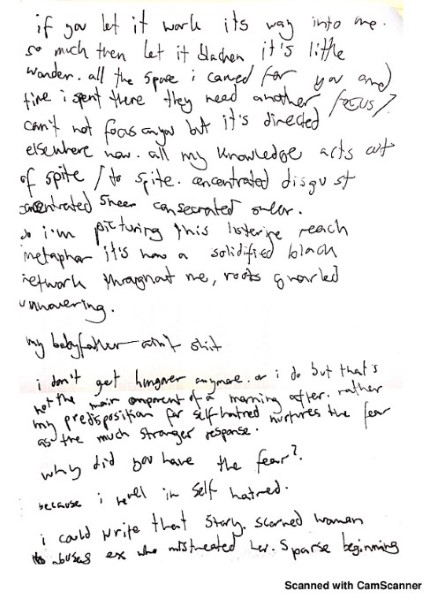 if you let it work its way into me.
so much then let it blacken it's little
wonder. all the space i carved for you and
time i spent there they need another focus/?
can't not focus on you but it's directed
elsewhere now. all my knowledge acts out
of spite / to spite. concentrated disgust
concentrated sneer consecrated
so i'm picturing this festering reach
metaphor it's now a solidified black
network throughout me, roots gnarled
unwavering.
my babyfather ain't shit
i don't get hungover anymore. or i do but that's
not the main component of a morning after. rather
my predisposition for self hatred nurtures the fear
as the much stronger response.
why did you have the fear?
because i revel in self hatred.
i could write that story. scorned woman
abuses ex who mistreated her. sparse beginning
Scanned with CamScanner